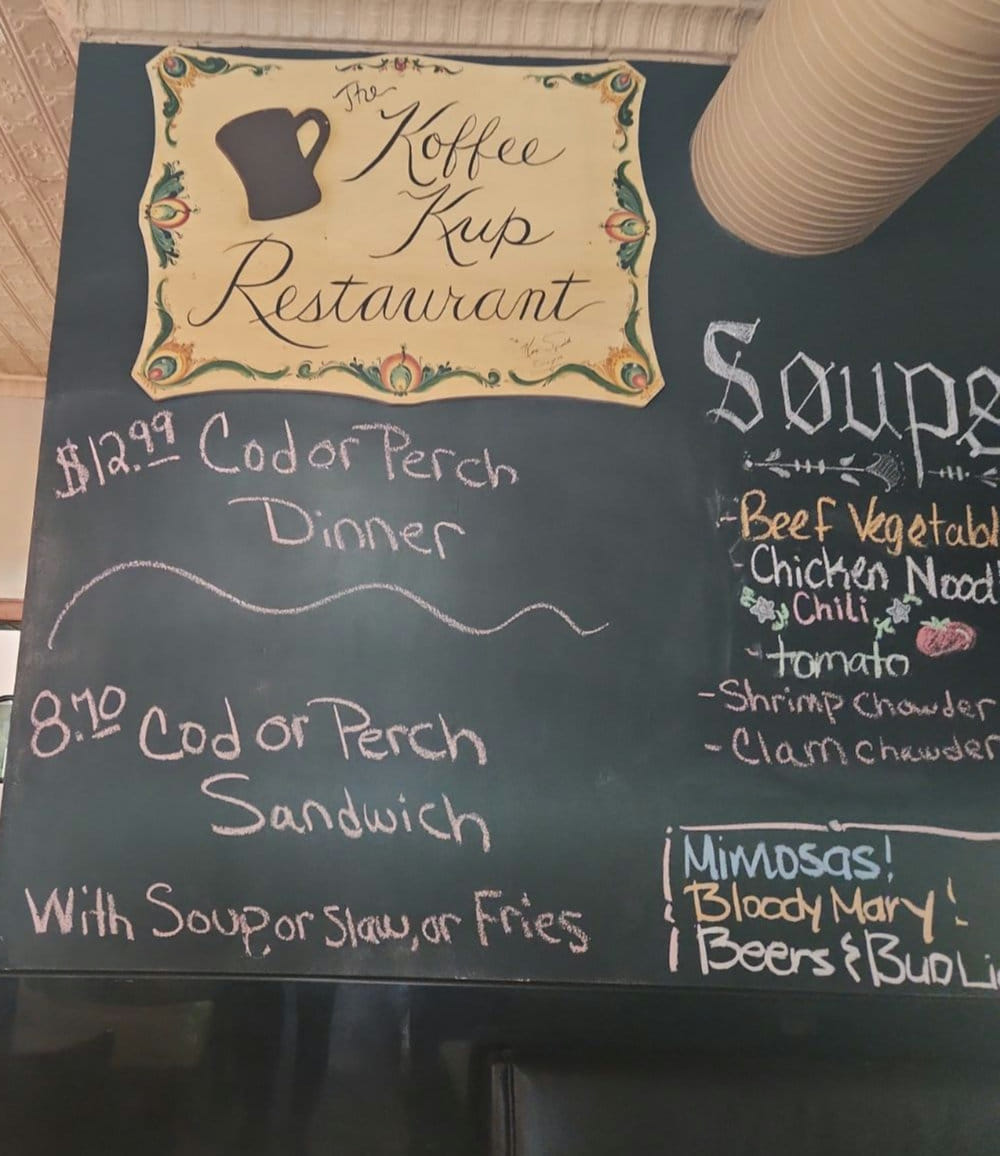 The
Koffee
Kup
Restaurant
$12.99 Cod or Perch
Dinner
8.70 Cod or Perch
Sandwich
With Soup, or Slaw, or Fries
Soups
-Beef Vegetabl
-Chicken Nood
Chili
-tomato
-Shrimp Chowder
-Clam chawder
Mimosas!
Bloody Mary!
Beers & Bud Li